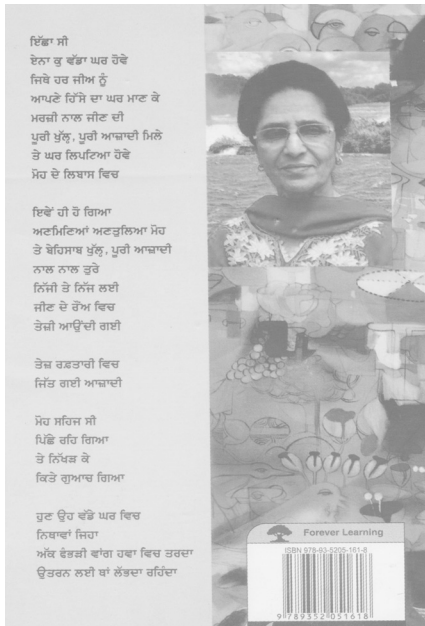 ਇੱਛਾ ਸੀ
ਏਨਾ ਕੁ ਵੱਡਾ ਘਰ ਹੋਵੇ
ਜਿਥੇ ਹਰ ਜੀਅ ਨੂੰ
ਆਪਣੇ ਹਿੱਸੇ ਦਾ ਘਰ ਮਾਣ ਕੇ
ਮਰਜ਼ੀ ਨਾਲ ਜੀਣ ਦੀ
ਪੂਰੀ ਖੁੱਲ੍ਹ, ਪੂਰੀ ਆਜ਼ਾਦੀ ਮਿਲੇ
ਤੇ ਘਰ ਲਿਪਟਿਆ ਹੋਵੇ
ਮੋਹ ਦੇ ਲਿਬਾਸ ਵਿਚ
ਇਵੇਂ ਹੀ ਹੋ ਗਿਆ
ਅਣਮਿਣਿਆਂ ਅਣਤੁਲਿਆ ਮੋਹ
ਤੇ ਬੇਹਿਸਾਬ ਖੁੱਲ੍ਹ, ਪੂਰੀ ਆਜ਼ਾਦੀ
ਨਾਲ ਨਾਲ ਤੁਰੇ
ਨਿੱਜੀ ਤੇ ਨਿੱਜ ਲਈ
ਜੀਣ ਦੇ ਰੌਂਅ ਵਿਚ
ਤੇਜ਼ੀ ਆਉਂਦੀ ਗਈ
ਤੇਜ਼ ਰਫ਼ਤਾਰੀ ਵਿਚ
ਜਿੱਤ ਗਈ ਆਜ਼ਾਦੀ
ਮੋਹ ਸਹਿਜ ਸੀ
ਪਿੱਛੇ ਰਹਿ ਗਿਆ
ਤੇ ਨਿੱਖੜ ਕੇ
ਕਿਤੇ ਗੁਆਚ ਗਿਆ
ਹੁਣ ਉਹ ਵੱਡੇ ਘਰ ਵਿਚ
ਨਿਥਾਵਾਂ ਜਿਹਾ
ਅੱਕ ਫੰਭੜੀ ਵਾਂਗ ਹਵਾ ਵਿਚ ਤਰਦਾ
ਉਤਰਨ ਲਈ ਥਾਂ ਲੱਭਦਾ ਰਹਿੰਦਾ
Forever Learning
ISBN 978-93-5205-161-8
9 789352 051618